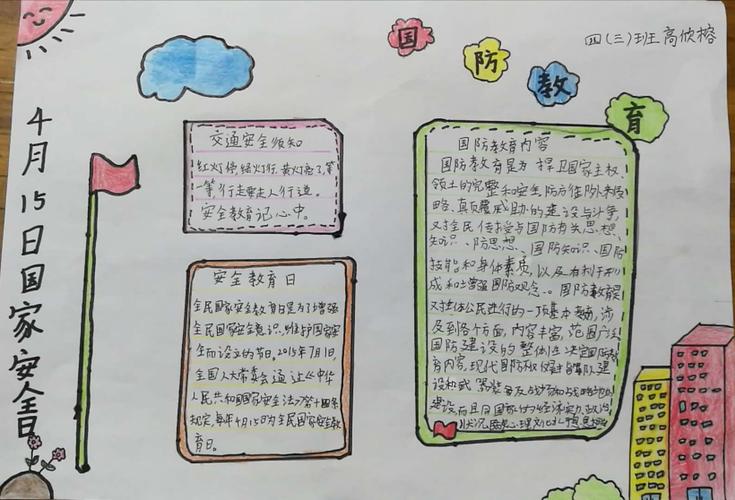 国防教育
四(三)班高欣榕
4月15日国家安全日
交通安全须知
红灯停,绿灯行,黄灯亮了,等
一等,行走要走人行道。
安全教育记心中。
安全教育日
全民国家安全教育日是为了增强
全民国家安全意识,维护国家安
全而设立的节日。2015年7月1日,
全国人大常委会通过《中华
人民共和国国家安全法》第十四条
规定,每年4月15日为全民国家安全教
育日。
国防教育内容
国防教育是为捍卫国家主权、
领土的完整和安全,防
略、颠覆 的建设与斗争,
对全民传授与国防有关思想、
知识、 防思想、国防知识、国防
技能和身体素质,以及有利于形
成和增强国防观念。国防教育是
对全体公民进行的一项基本 涉
及到各个方面,内容丰富,范围广
国防建设的整体 决定国防教
育内容,现代国防 建
战场和战略
建设,而且国家 经济 政治
状况 心理